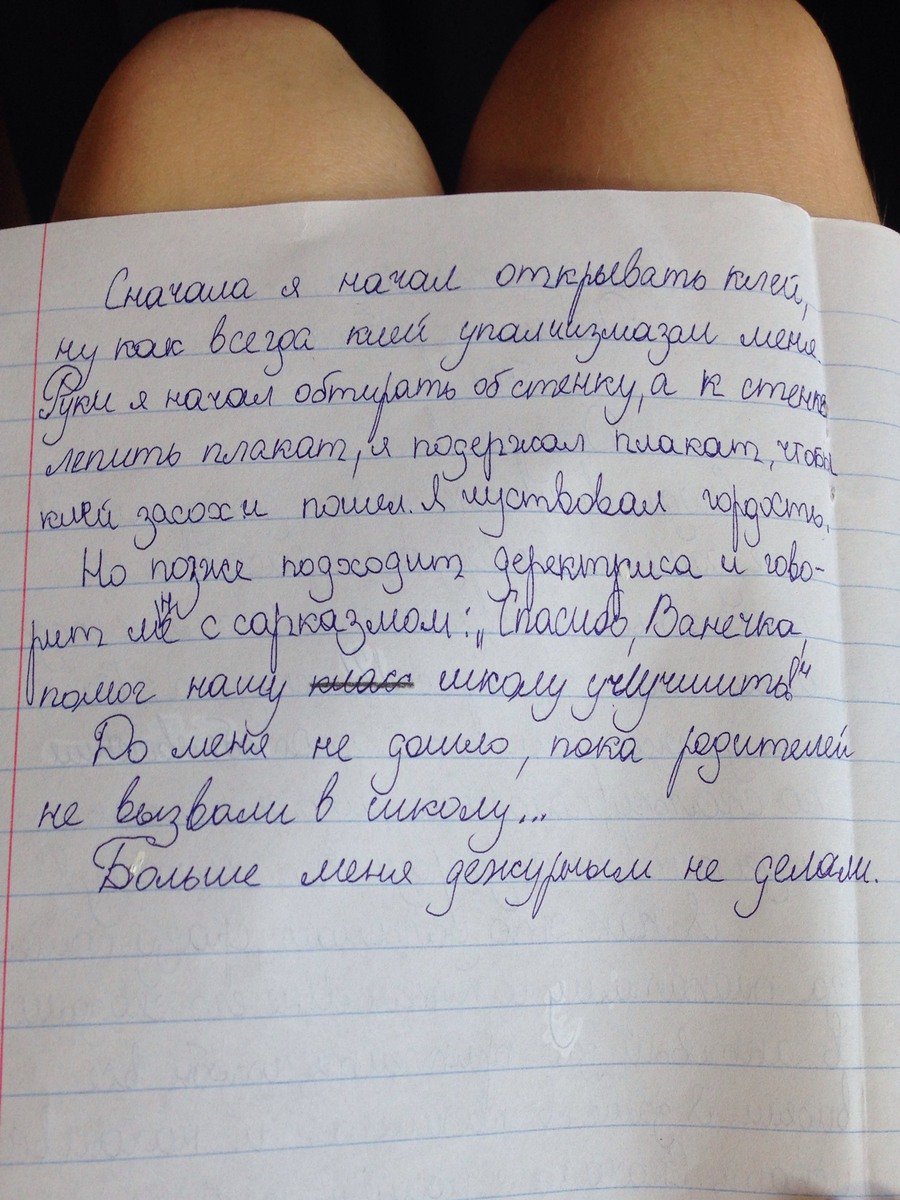 Сначала я начал открывать клей,
ну как всегда клей упал и измазал меня.
Руки я начал обтирать об стенку, а к стенке
лепить плакат, я подержал плакат, чтобы
клей засох и пошел. Я чуствовал гордость.
Но позже подходит деректриса и гово-
рит мне с сарказмом: „Спасибо, Ванечка,
помог нашу класс школу улучшить!"
До меня не дошло, пока родителей
не вызвали в школу...
Больше меня дежурным не делали.